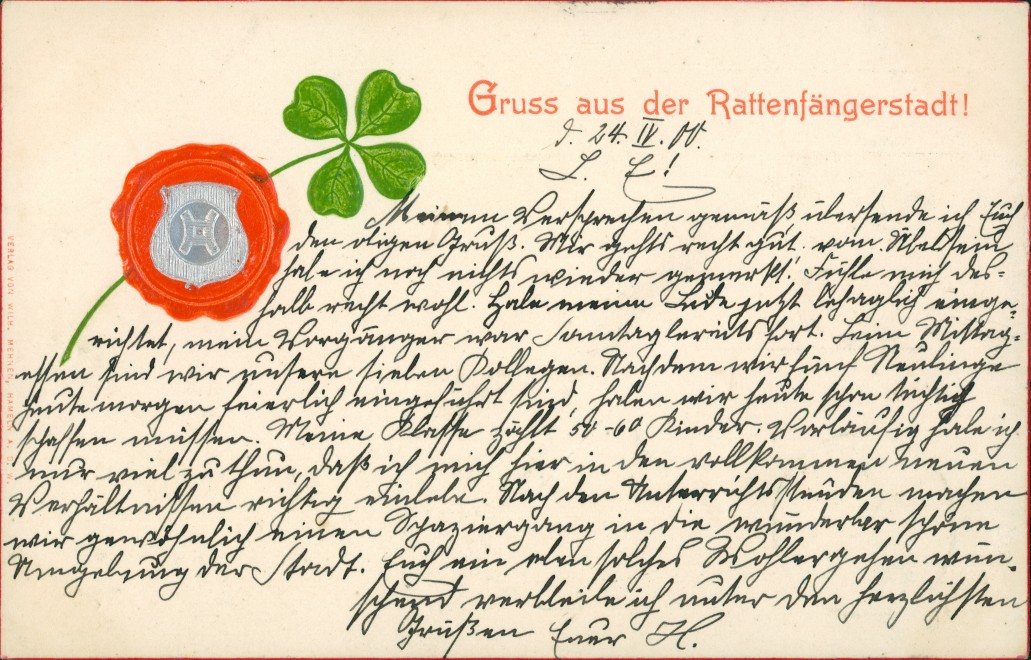 Gruss aus der Rattenfängerstadt!
d. 24. IV. 00.
L. E!
Meinem Versprechen gemäß übersende ich Euch
den obigen Gruß. Mir gehts recht gut. vom Übelsein
habe ich noch nichts wieder gemerkt. Fühle mich des-
halb recht wohl. Habe meine Bude jetzt behaglich einge-
richtet, mein Vorgänger war Sonntag bereits fort. Beim Mittag-
essen sind wir unsere sieben Kollegen. Nachdem wir fünf Neulinge
heute morgen feierlich eingeführt sind, haben wir heute schon tüchtig
schaffen müssen. Meine Klasse zählt 50-60 Kinder. Vorläufig habe ich
nur viel zu thun, daß ich mich hier in den vollkommen neuen
Verhältnissen richtig einlebe. Nach den Unterrichtsstunden machen
wir gewöhnlich einen Spaziergang in die wunderbar schöne
Umgebung der Stadt. Euch ein eben solches Wohlergehen wün-
schend verbleibe ich unter den herzlichsten
Grüßen Euer H.
VERLAG VON WILH. MEHNEN, HAMELN A. D. W.